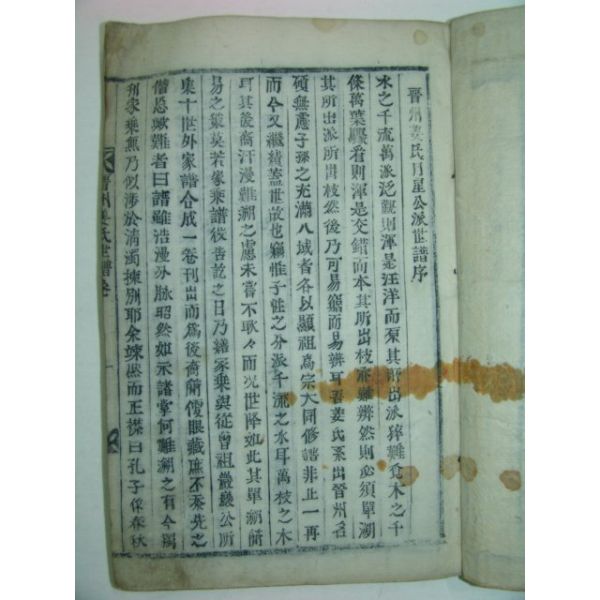 晉州姜氏月星公派世譜序
水之千流萬派泛觀則渾是汪洋而泵其所出派猝難食木之千
條萬葉驟看則渾是交錯而本其所出枝亦難辨然則必須單溯
其所出派所出枝然後乃可易籍而易辨耳吾姜氏系出晉州名
碩無慮子孫之充滿八域者各以顯祖爲宗大同修譜非止一再
而今又繼績蓋世故也竊惟子姓之分派千流之水耳萬枝之木
耳其後裔汗漫難溯之慮未嘗不耿々而況世降如此其單溯
易之䇿莫若家乘譜後吉乾之日乃繕家乘與從曾祖 公所
集十世外家譜合成一卷刊出而爲後裔簡便眼藏庶不忝先之
僭恐歟難者曰譜雖浩漫分脉昭然如示諸掌何難溯之有今獨
刋家乘無乃似涉於淸濁揀別耶余竦然而正襟曰孔子修春秋
晋州姜氏世譜